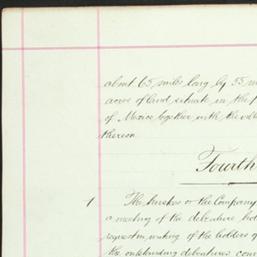 about 65 miles long by 35 m
acres of land situate in the
of Mexico together with the
thereon.
Fourth
1
The trustees or the Company
a meeting of the debenture
request in writing of the holders of
the outstanding debentures